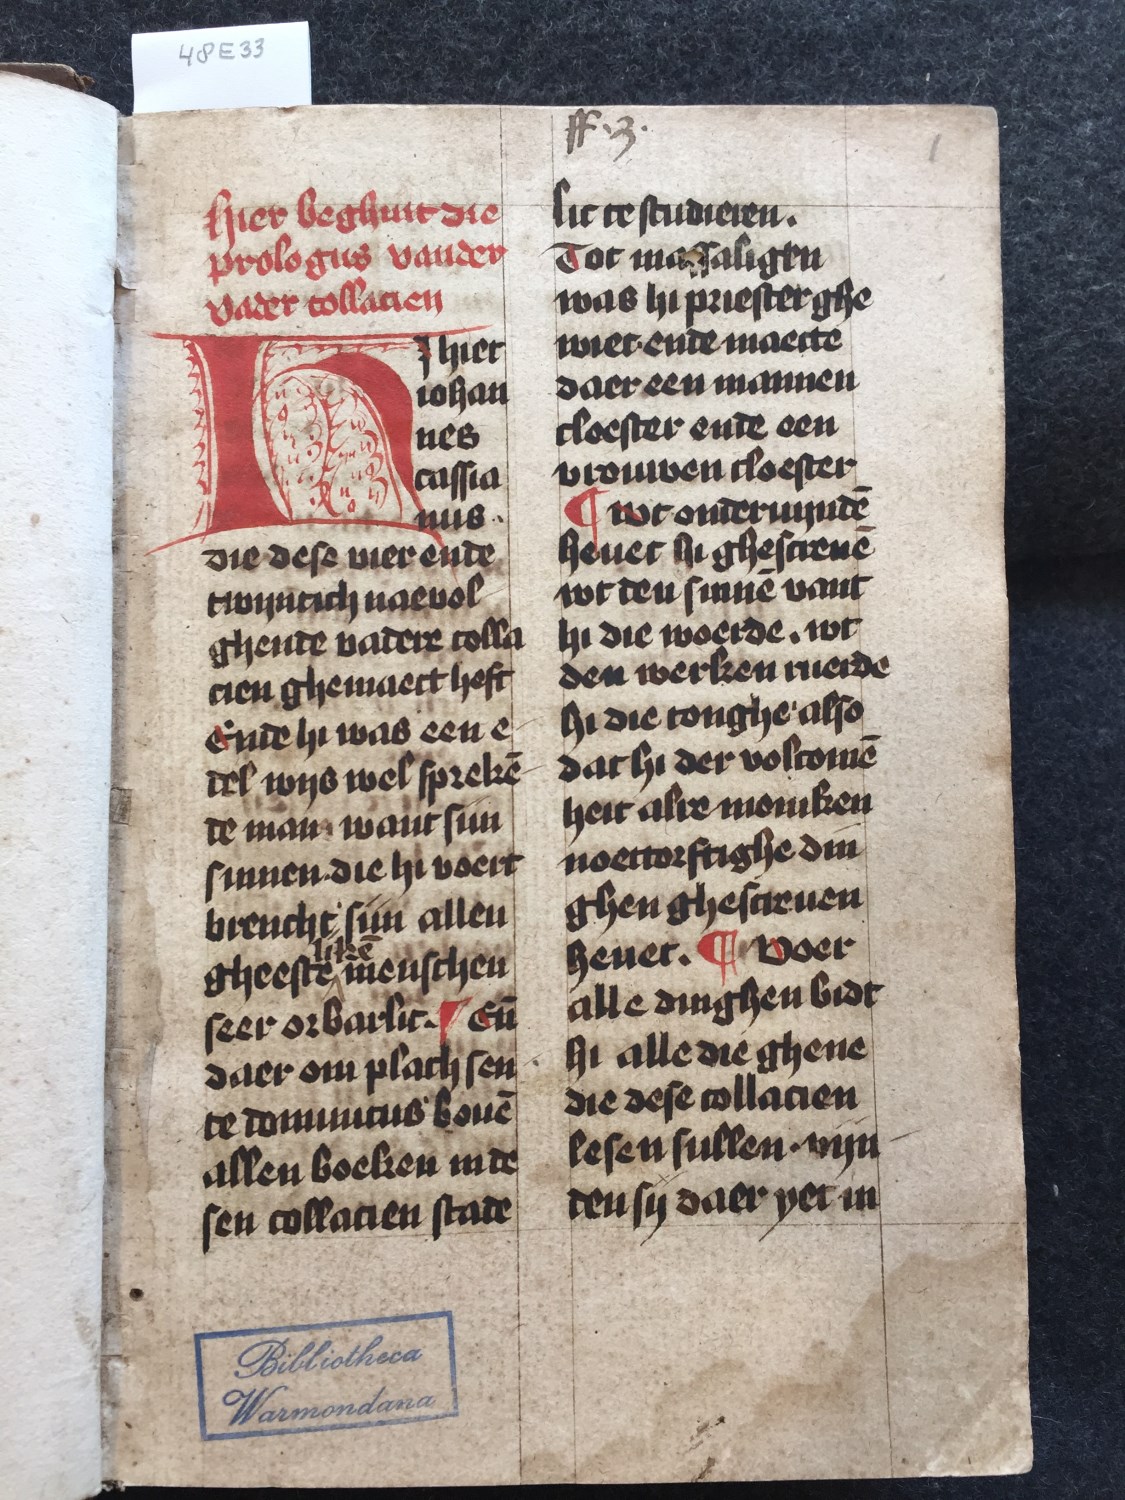 48E33
ff. 3.
1
hier beghint die
prologus vander
vader collacien
Hier
iohan
nes
cassia
nus.
die dese vier ende
twijntich naevol
ghente vadere colla
cien ghemaect heft
Ende hi was een e
del wijs wel sprekē
te man want sijn
sinnen die hi voert
brencht sijn allen
likē
gheeste menschen
seer orbarlic. ¶ Eñ
daer om plach sen
te dominicus bouē
allen boeken in de
sen collacien state
lic te studieren.
Tot massaligen
was hi priester ghe
wiet ende maecte
daer een mannen
cloester ende een
vrouwen cloester
¶ wt onderwijndē
heuet hi ghescreuē
wt den sinnē vant
hi die woerde. wt
den werken ruerde
hi die tonghe also
dat hi der volcomē
heit alre moniken
noettorftighe din
ghen ghescreuen
heuet. ¶ Voer
alle dinghen bidt
hi alle die ghene
die dese collacien
lesen sullen. vijn
den sij daer yet in
Bibliotheca
Warmondana